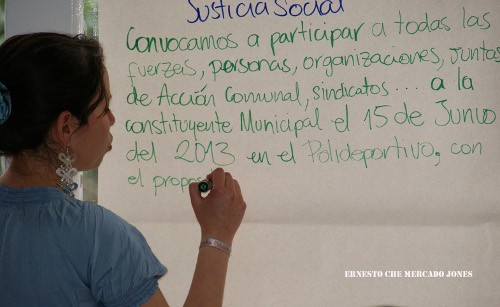 Justicia Social
Convocamos a participar a todas las
fuerzeis, personas, organizaciones, juntas
de Acción Comunal, sindicatos ... a la
constituyente Municipal el 15 de Junio
del 2013 en el Polideportivo, con
el propos
ERNESTO CHE MERCADO JONES